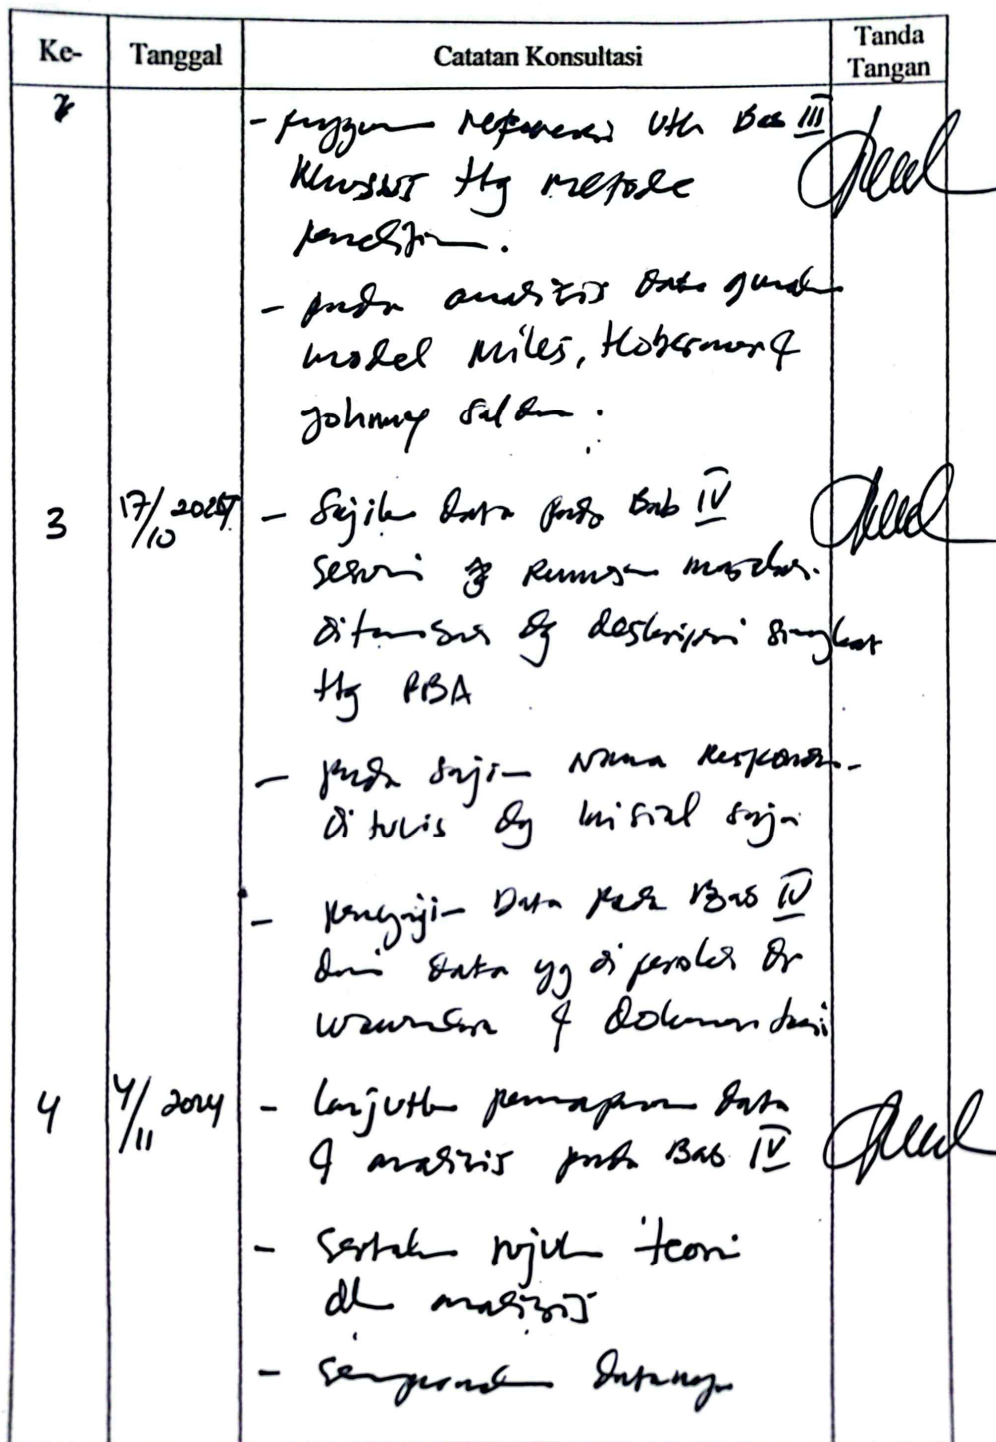 Ke- Tanggal Catatan Konsultasi Tanda Tangan
- referensi utk Bab III
khusus ttg metode
penelitian.
- pada analisis data gunakan
model Miles, Hoberman &
Johnny Saldana.
3 17/10 - Sajikan data pada Bab IV
sesuai dg rumusan masalah.
dg deskripsi singkat
ttg PBA
- pada sajian Nama Responden
ditulis dg inisial saja
- penyajian Data pada Bab IV
dari data yg diperoleh dr
wawancara & dokumentasi
4 4/11 2024 - lanjutkan pemaparan data
& analisis pada Bab IV
- sertakan rujukan teori
dlm analisis
- sempurnakan datanya